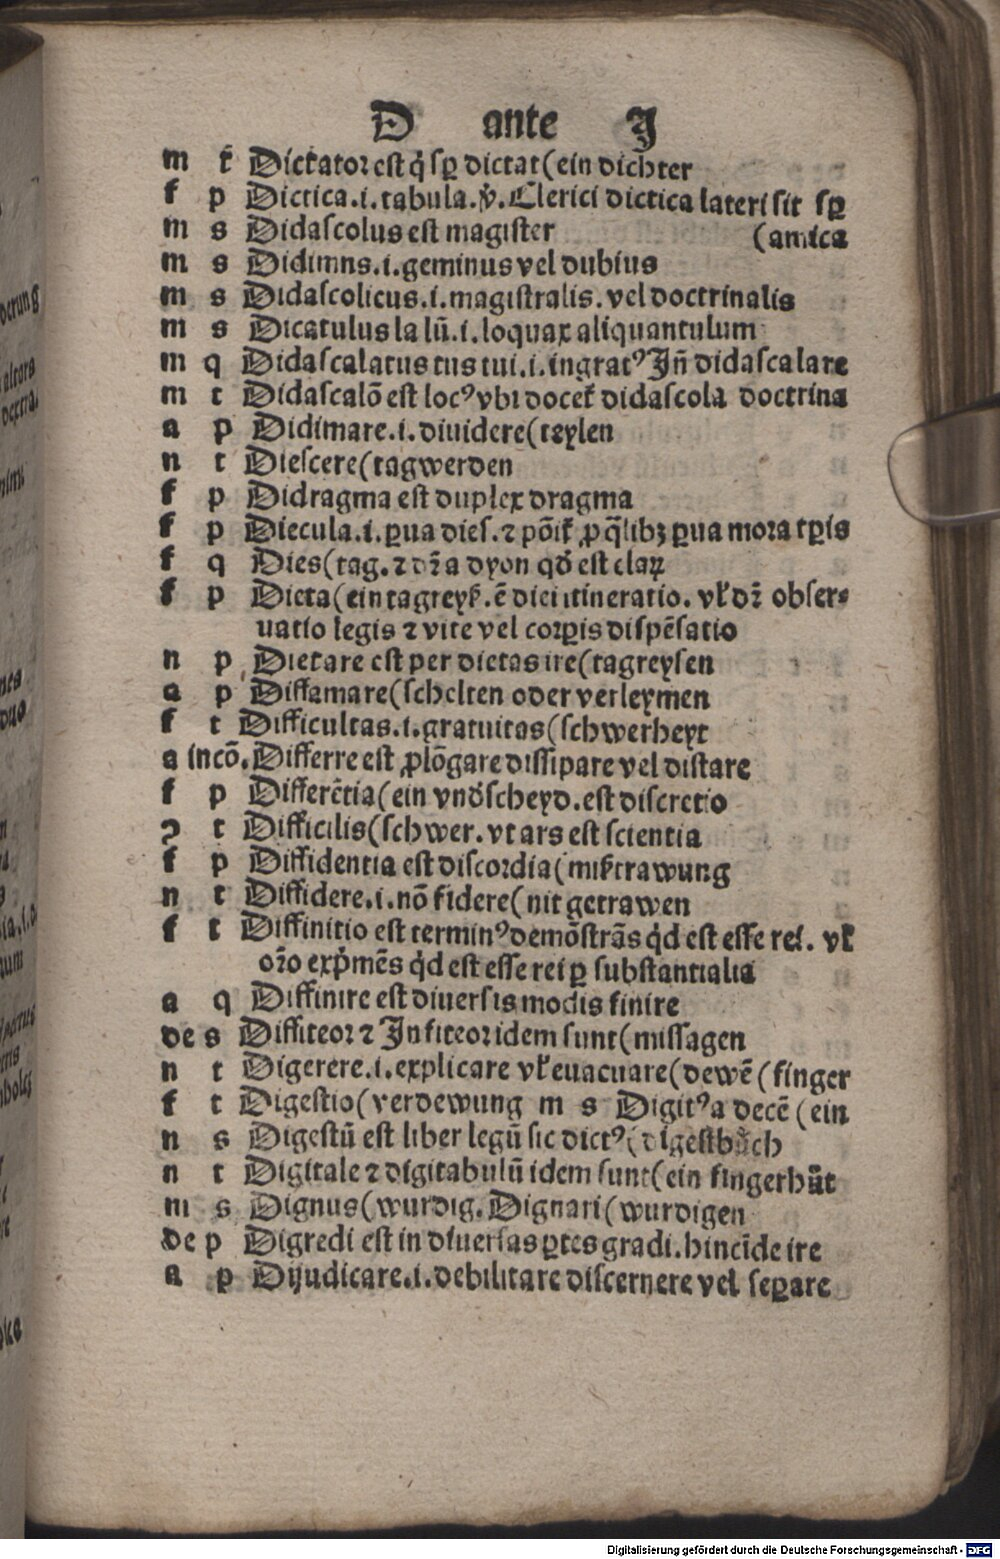 D ante J
m t Dictator est q̇ sꝑ dictat (ein dichter
f p Dictica .i. tabula. v̓. Clerici dictica lateri sit sꝑ
m s Didascolus est magister (amica
m s Didimns .i. geminus vel dubius
m s Didascolicus .i. magistralis. vel doctrinalis
m s Dicatulus la lū .i. loquax aliquantulum
m q Didascalatus tus tui .i. ingratꝰ Jn̄ didascalare
m t Didascalō est locꝰ vbi docet᷑ didascola doctrina
a p Didimare .i. diuidere (teylen
n t Diescere (tagwerden
f p Didragma est duplex dragma
f p Diecula .i. ꝑua dies. ⁊ pōit᷑ ꝓ q̄libꝫ ꝑua mora tꝑis
f q Dies (tag. ⁊ dr̄ a dyon qd̓ est claꝝ
f p Dieta (ein tagreyß. ē diei itineratio. vł dr̄ obser⸗
uatio legis ⁊ vite vel corꝑis dispēsatio
n p Dietare est per dietas ire (tagreysen
a p Diffamare (schelten oder verleymen
f t Difficultas .i. grauitas (schwerheyt
a incō. Differre est ꝓlōgare dissipare vel distare
f p Differētia (ein vnd̓scheyd. est discretio
ꝯ t Difficilis (schwer. vt ars est scientia
f p Diffidentia est discordia (mißtrawung
n t Diffidere .i. nō fidere (nit getrawen
f t Diffinitio est terminꝰ demōstrās q̇d est esse rei. vł
or̄o exp̓mēs q̇d est esse rei ꝑ substantialia
a q Diffinire est diuersis modis finire
de s Diffiteor ⁊ Jnfiteor idem sunt (missagen
n t Digerere .i. explicare vł euacuare (dewē (finger
f t Digestio (verdewung m s Digitꝰ a decē (ein
n s Digestū est liber legū sic dictꝰ (digestbůch
n t Digitale ⁊ digitabulū idem sunt (ein fingerhůt
m s Dignus (wurdig. Dignari (wurdigen
de p Digredi est in diuersas ꝑtes gradi. hincīde ire
a p Dijudicare .i. debilitare discernere vel seꝑare
Digitalisierung gefördert durch die Deutsche Forschungsgemeinschaft - DFG